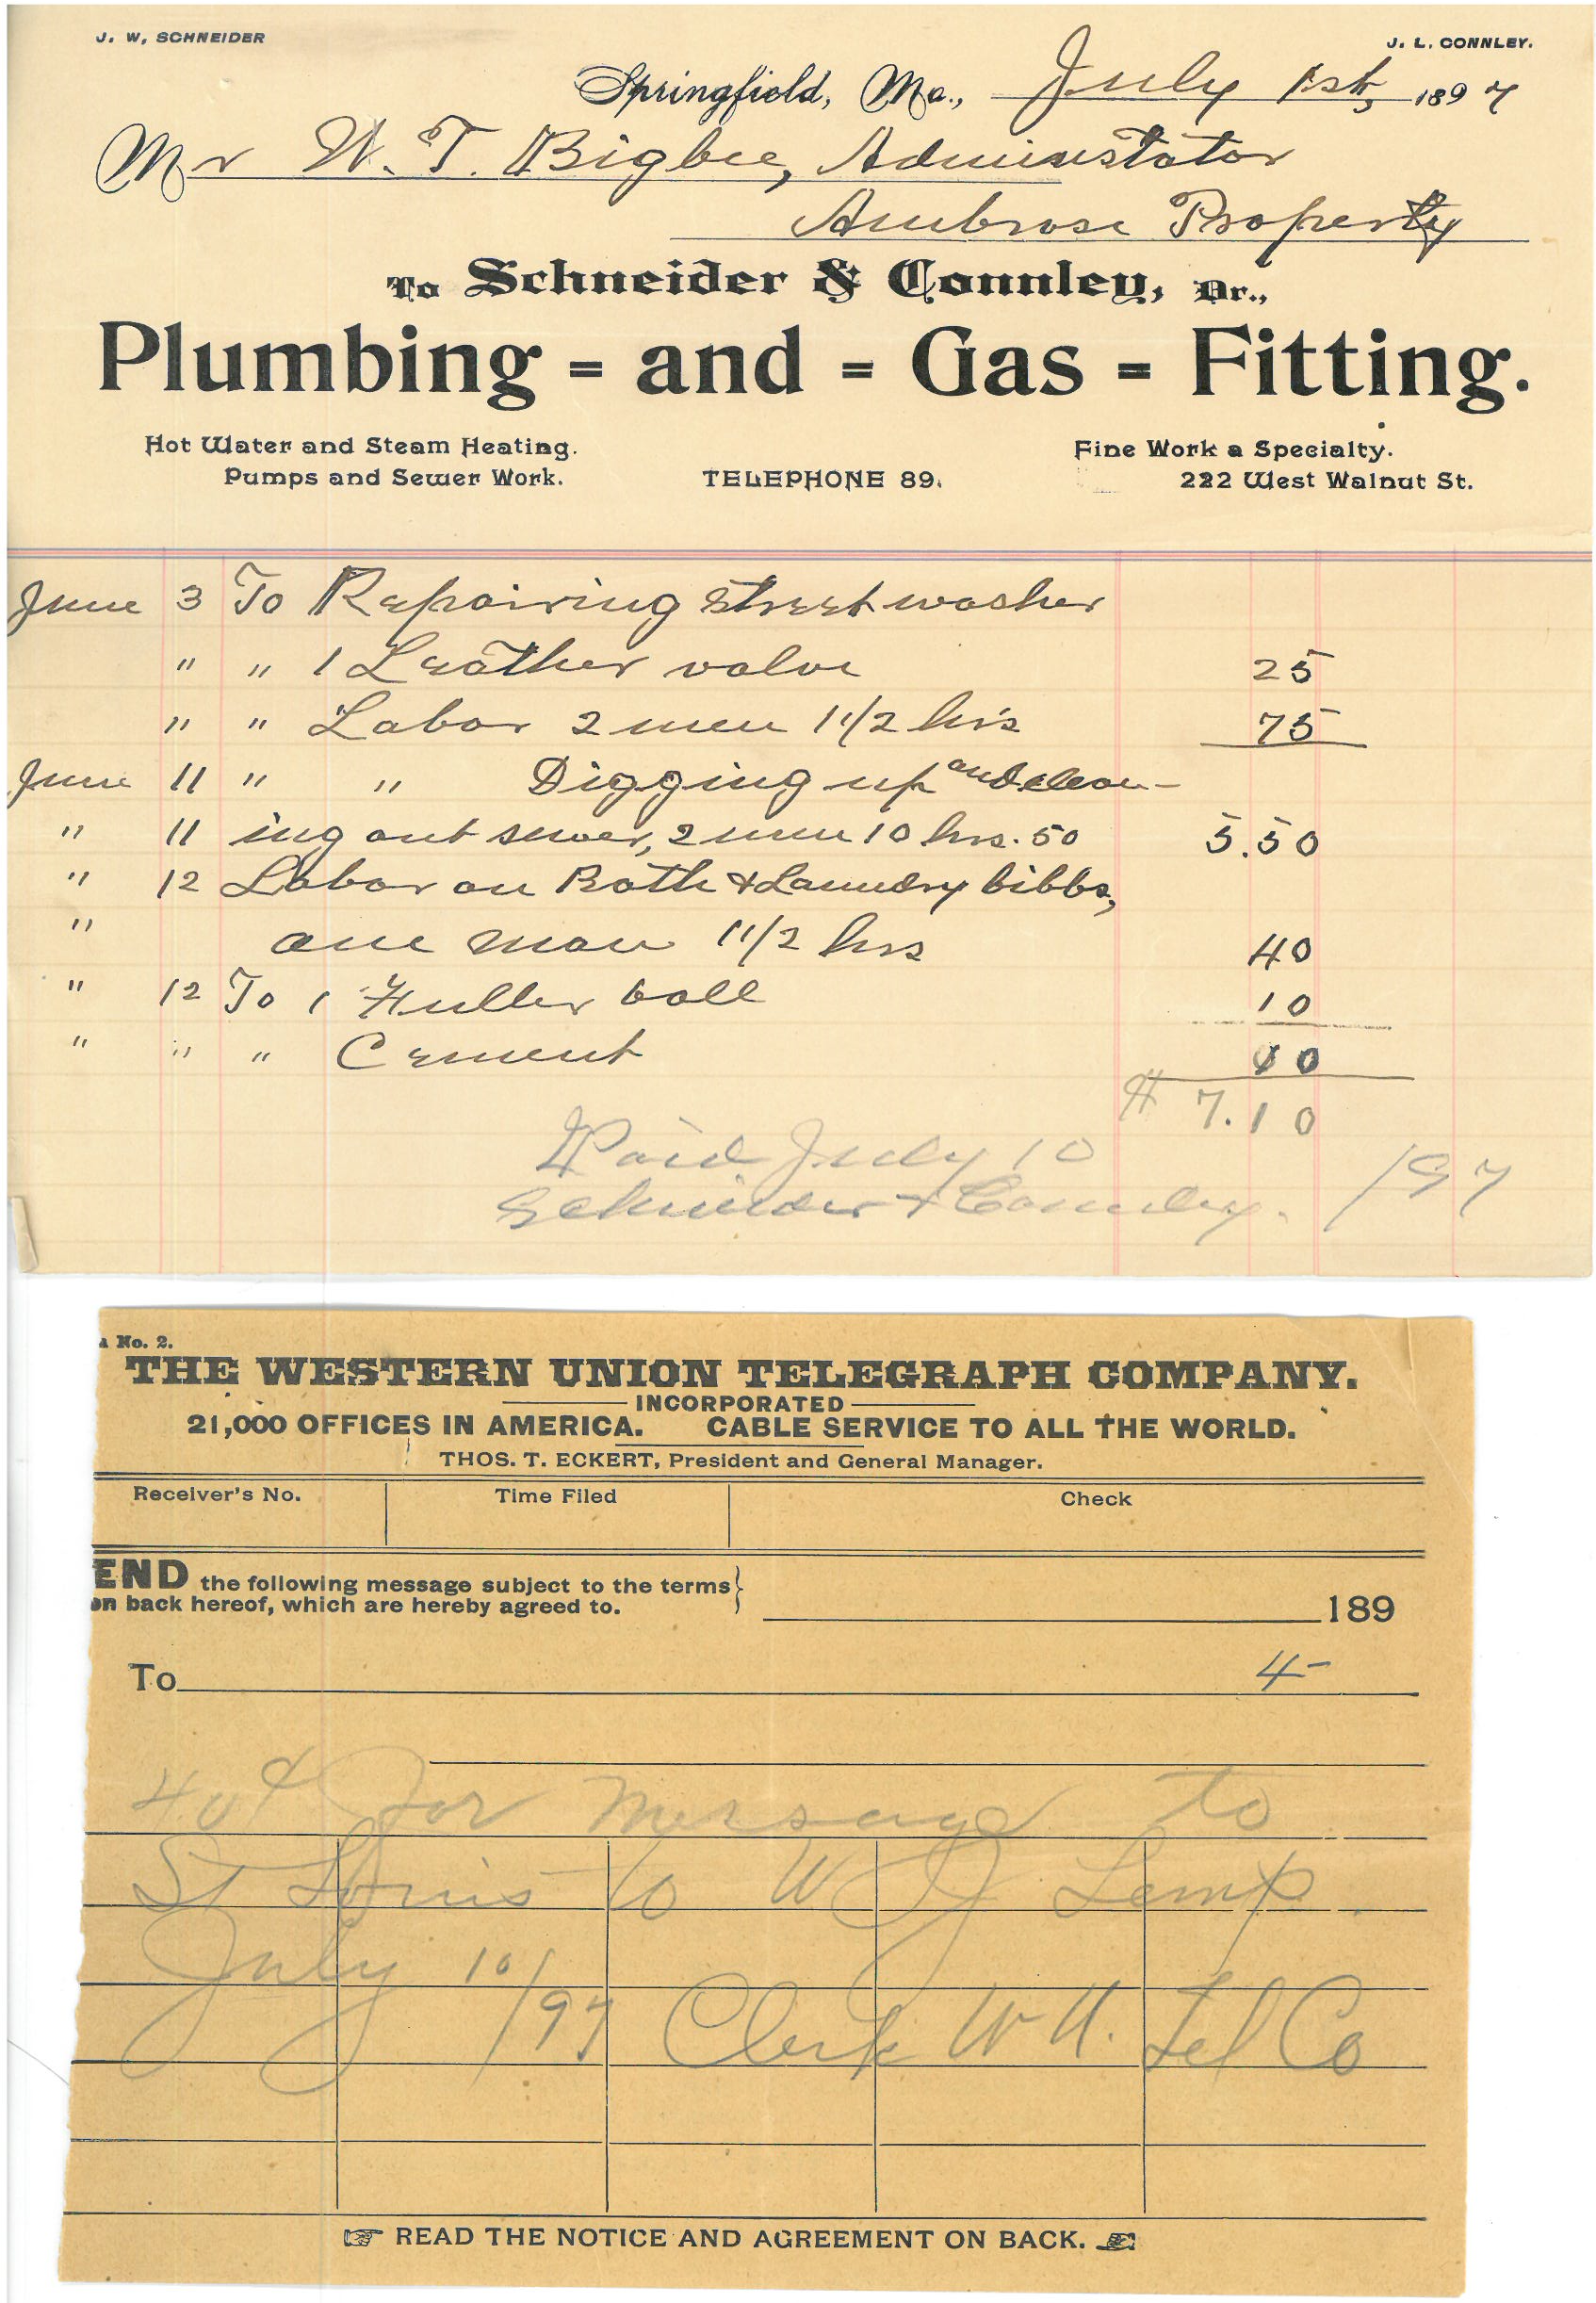 J. W, SCHNEIDER
J. L. CONNLEY.
Springfield, Mo., July 1st, 1897
Mr W. T. Bigbee, Adminstator
Ambrose Property
To Schneider & Connley, Dr.,
Plumbing = and = Gas = Fitting.
Hot Water and Steam Heating.
Fine Work a Specialty.
Pumps and Sewer Work.
TELEPHONE 89.
222 West Walnut St.
June 3 To Repairing street washer
" " 1 Leather valve 25
" " Labor 2 men 1 1/2 hrs 75
June 11 " " Digging up and clean-
" 11 ing out sewer, 2 men 10 hrs. 50 5.50
" 12 Labor on Bath & Laundry bibbs,
" one man 1 1/2 hrs 40
" 12 To 1 Fuller ball 10
" " " Cement 10
$ 7.10
Paid July 10
Schneider & Connley. /97
No. 2.
THE WESTERN UNION TELEGRAPH COMPANY.
INCORPORATED
21,000 OFFICES IN AMERICA. CABLE SERVICE TO ALL THE WORLD.
THOS. T. ECKERT, President and General Manager.
Receiver's No. Time Filed Check
END the following message subject to the terms
on back hereof, which are hereby agreed to.
189
To 4-
40¢ for message to
St Louis to W J Lemp.
July 10/97 Clerk W U. Tel Co
READ THE NOTICE AND AGREEMENT ON BACK.